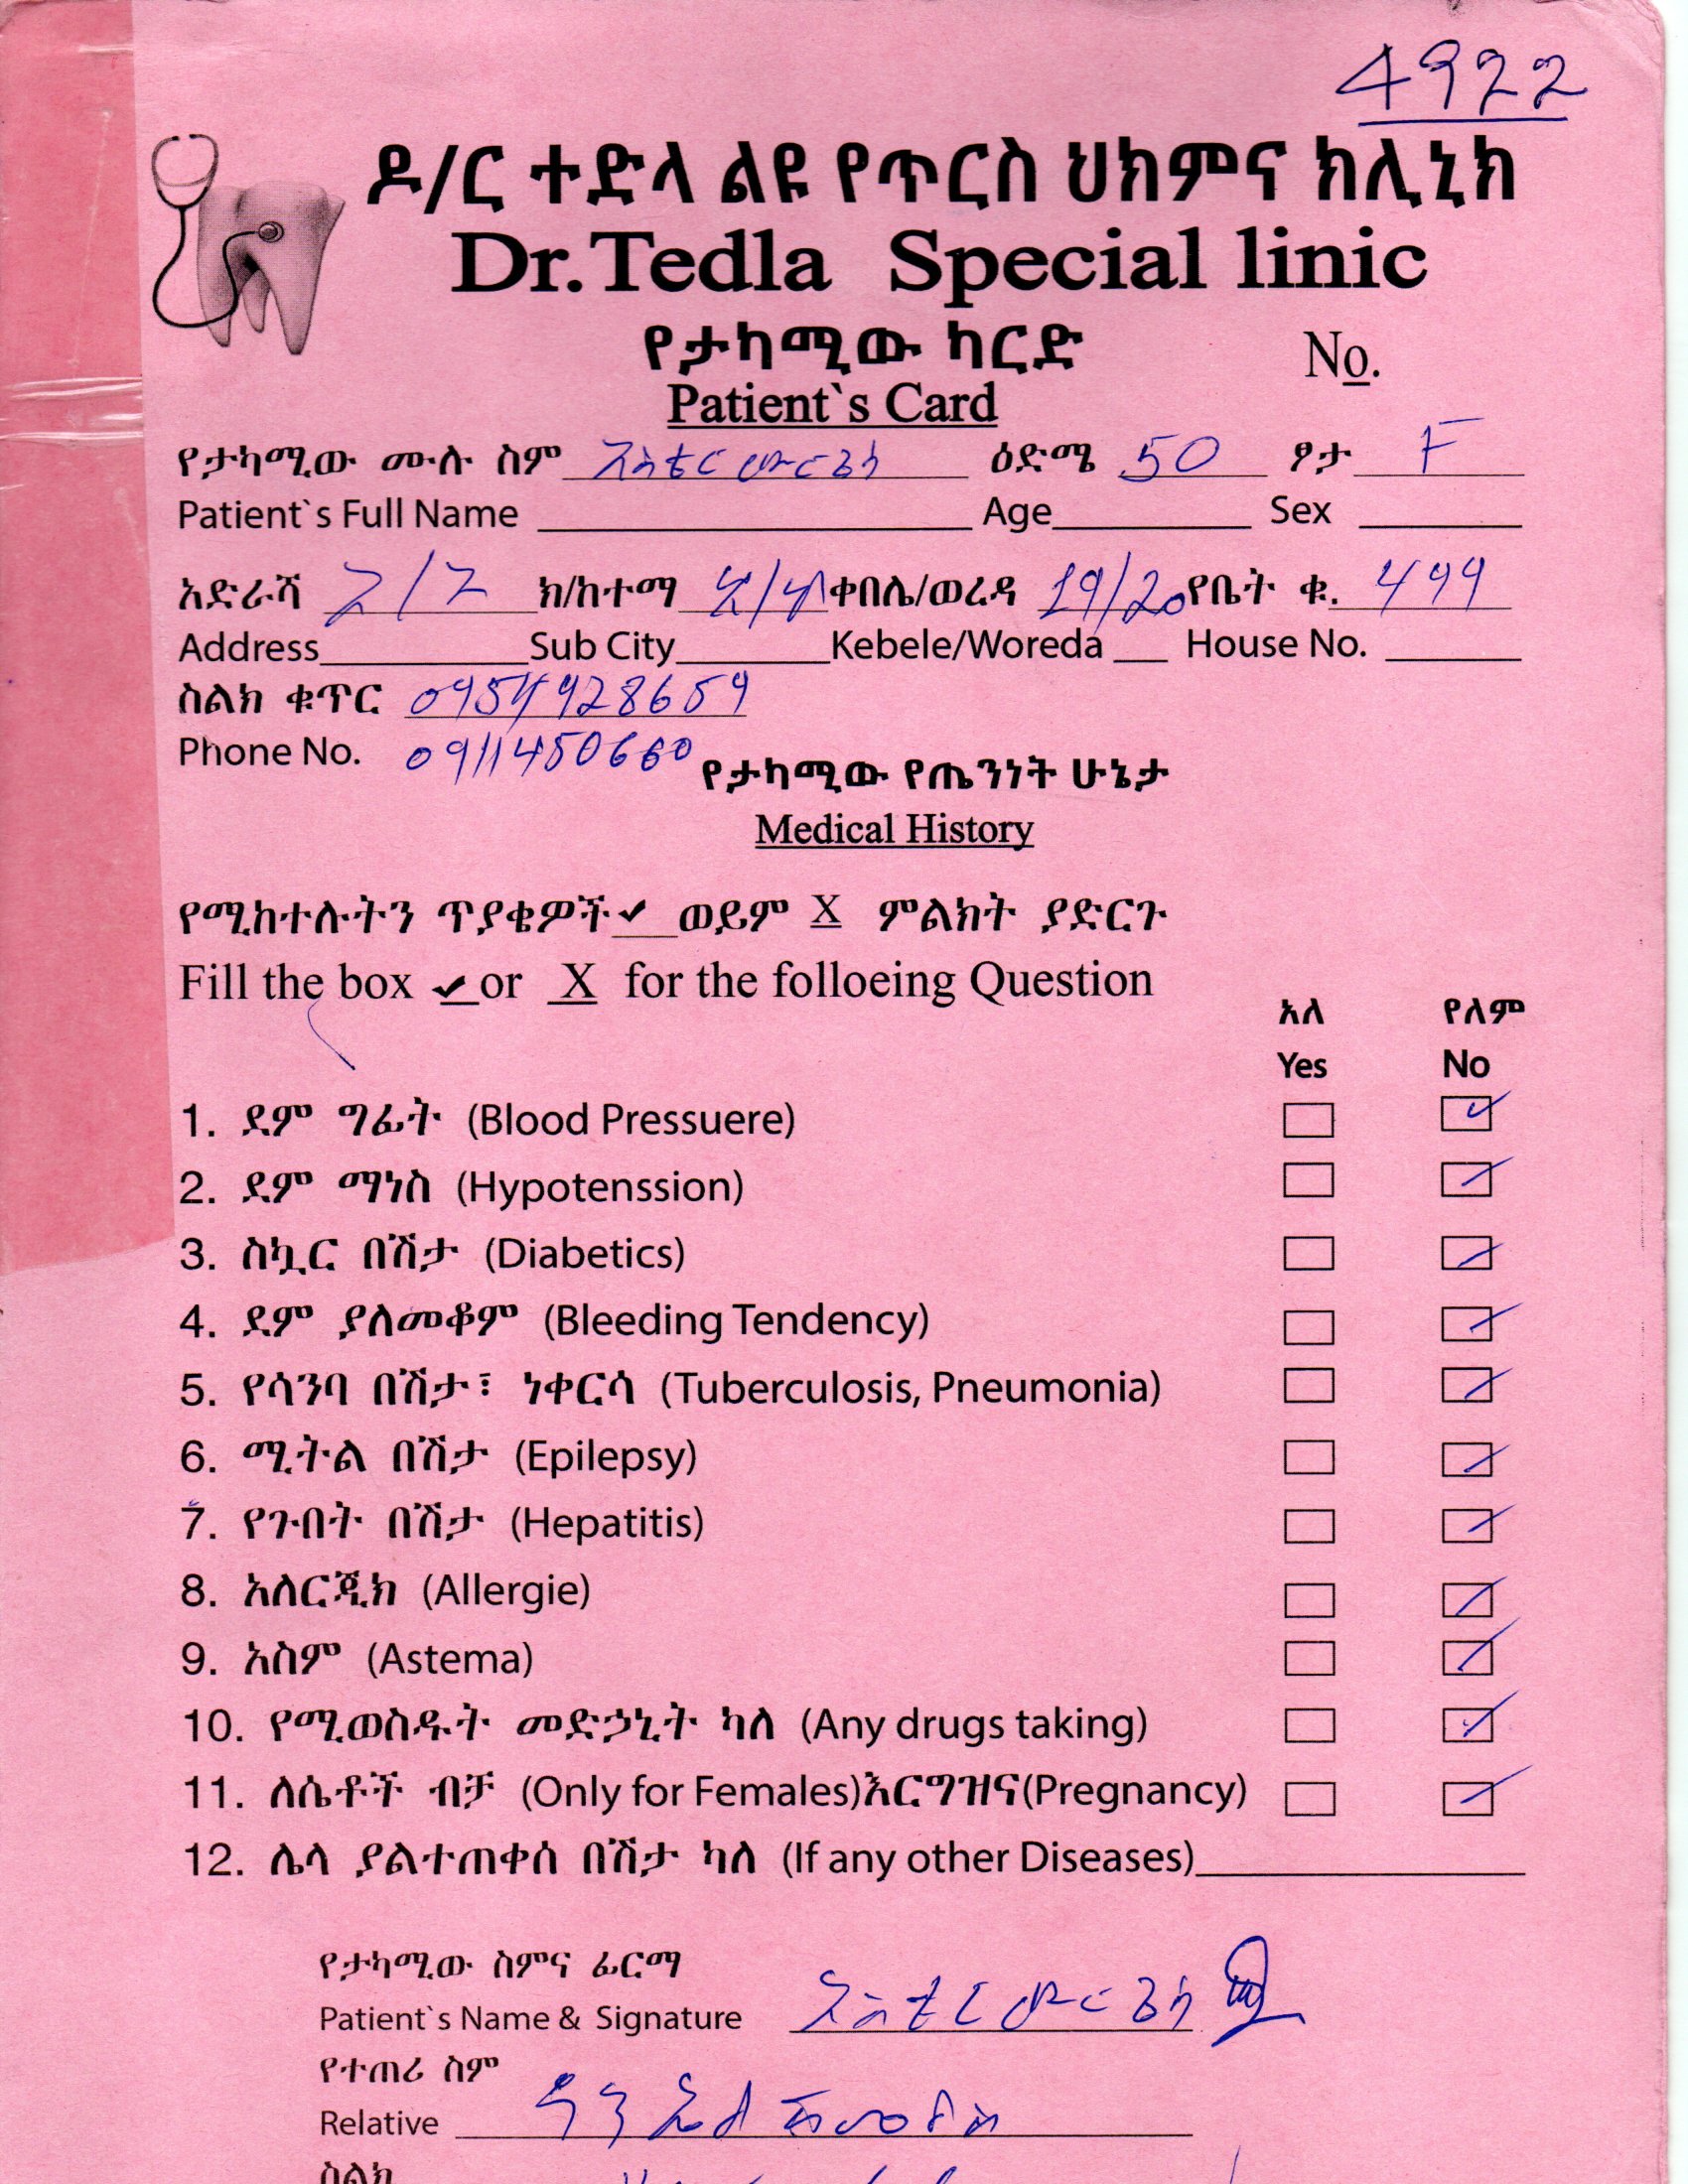 4922
ዶ/ር ተድላ ልዩ የጥርስ ህክምና ክሊኒክ
Dr.Tedla Special linic
የታካሚው ካርድ
No.
Patient`s Card
የታካሚው ሙሉ ስም አስቴር ዕድሜ 50 ፆታ F
Patient`s Full Name Age Sex
አድራሻ ክ/ከተማ ቀበሌ/ወረዳ 19/20 የቤት ቁ. 499
Address Sub City Kebele/Woreda House No.
ስልክ ቁጥር
Phone No. 0911450660
የታካሚው የጤንነት ሁኔታ
Medical History
የሚከተሉትን ጥያቄዎች ✓ ወይም X ምልክት ያድርጉ
Fill the box ✓ or X for the folloeing Question
አለ የለም
Yes No
1. ደም ግፊት (Blood Pressuere)
2. ደም ማነስ (Hypotenssion)
3. ስኳር በሽታ (Diabetics)
4. ደም ያለመቆም (Bleeding Tendency)
5. የሳንባ በሽታ፣ ነቀርሳ (Tuberculosis, Pneumonia)
6. ሚትል በሽታ (Epilepsy)
7. የጉበት በሽታ (Hepatitis)
8. አለርጂክ (Allergie)
9. አስም (Astema)
10. የሚወስዱት መድኃኒት ካለ (Any drugs taking)
11. ለሴቶች ብቻ (Only for Females)እርግዝና(Pregnancy)
12. ሌላ ያልተጠቀሰ በሽታ ካለ (If any other Diseases)
የታካሚው ስምና ፊርማ
Patient`s Name & Signature አስቴር
የተጠሪ ስም
Relative ዳንኤል
ስልክ